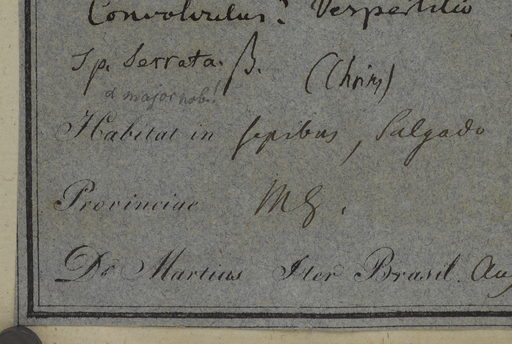 Convolvulus? Vespertilio
Sp. Serrata. β.
α major nob!
Habitat in sepibus, Salgado
Provinciae M G.
Dr Martius Iter Brasil. Aug